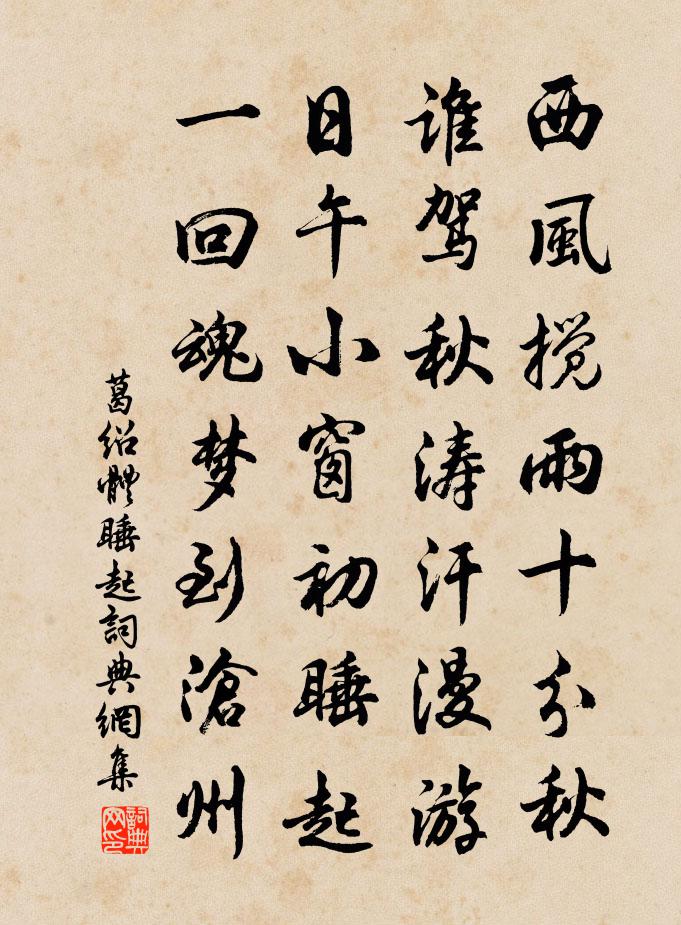 西風攪雨十分秋
誰駕秋濤汗漫游
日午小窗初睡起
一回魂梦到滄州
葛绍體睡起詞典網集
詞典网印